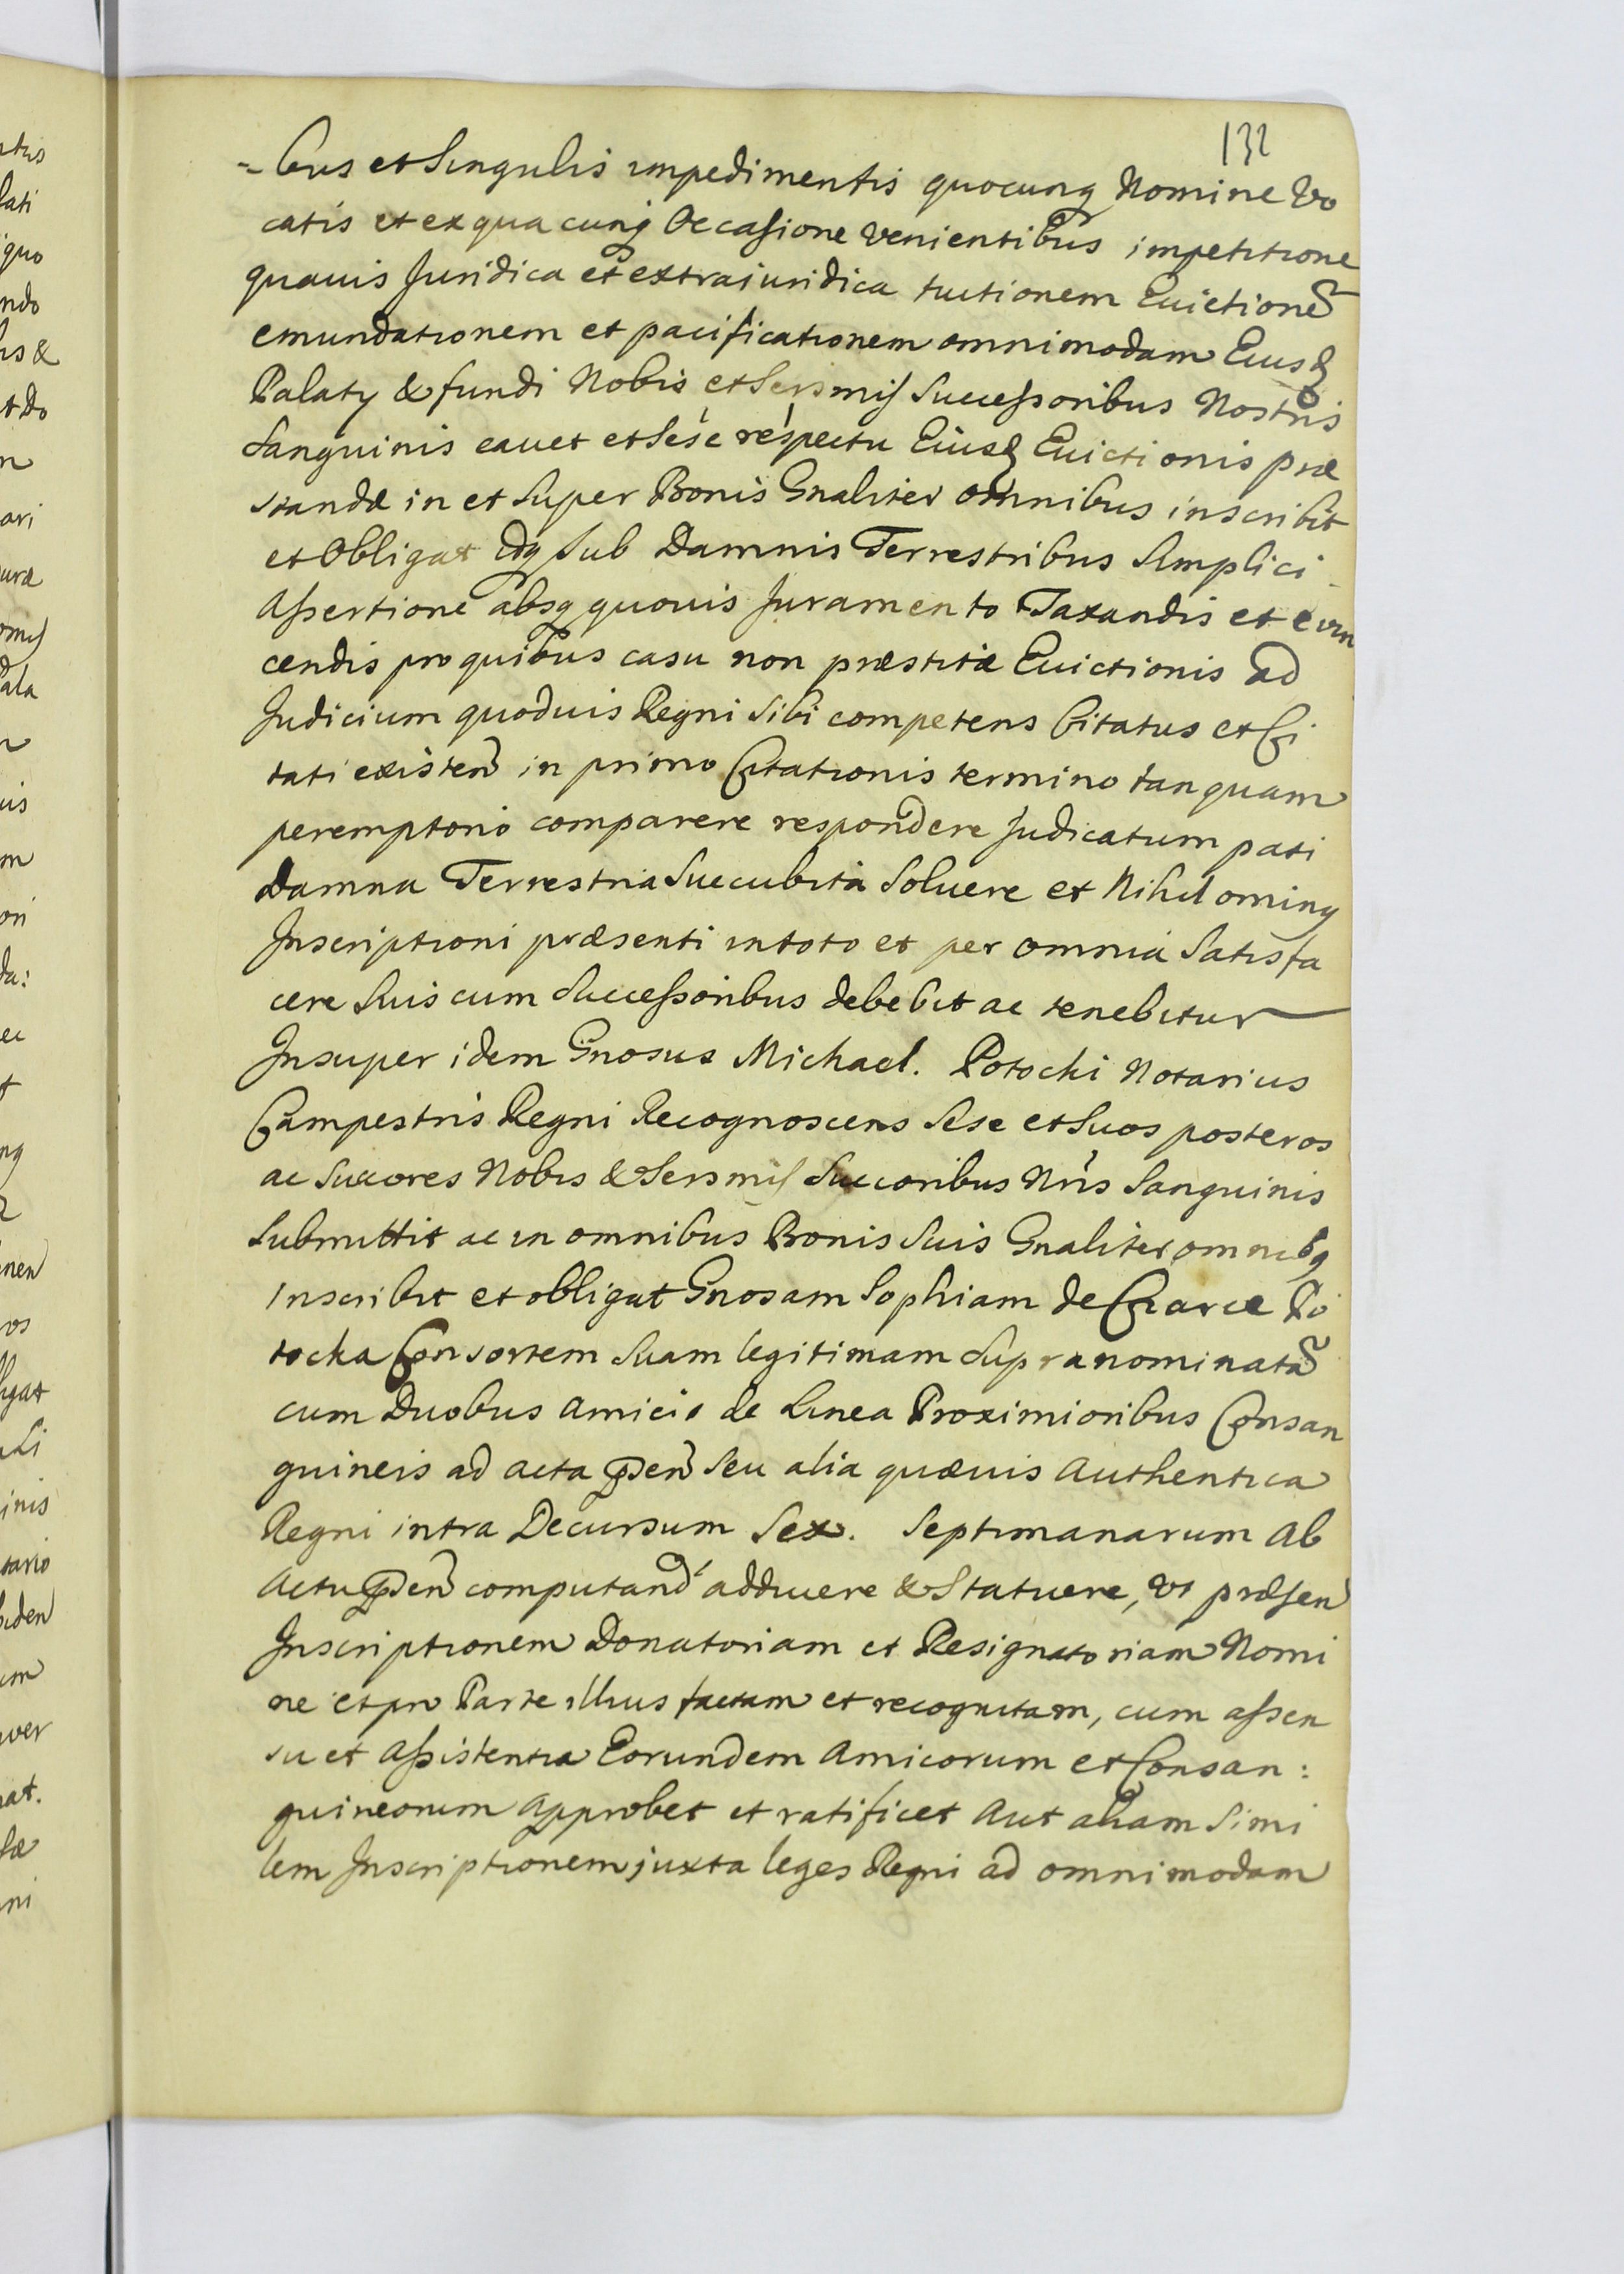 132
= bus et Singulis impedimentis quocunq Nomine Vo
catis et ex qua cunq Occasione venientibus impetitione
quauis Juridica et extrajuridica tuitionem Euictione
emundationem et pacificationem omnimodam Eiusd
Palaty & fundi Nobis et Sersmis Successoribus Nostris
Sanguinis cauet et Sese respectu Eiusd Euictionis præ
standæ in et Super Bonis Gnaliter omnibus inscribit
et Obligat Idq Sub Damnis Terrestribus Simplici
Assertione absq quouis Juramento Taxandis et evin
cendis pro quibus casu non præstitæ Euictionis ad
Judicium quoduis Regni Sibi competens Citatus et Ci
tati existen in primo Citationis termino tanquam
peremptorio comparere respondere Judicatum pati
Damna Terrestria Succubita Soluere et Nihilominq
Inscriptioni præsenti in toto et per omnia Satisfa
cere Suis cum Successoribus debebit ac tenebitur
Insuper idem Gnosus Michael. Potocki Notarius
Campestris Regni Recognoscens Sese et Suos posteros
ac Succores Nobis & Sersmis Succoribus Nris Sanguinis
Submittit ac in omnibus Bonis Suis Gnaliter omnibq
inscribit et obligat Gnosam Sophiam de Czarce Po
tocka Consortem Suam legitimam Supranominata
cum Duobus Amicis de Linea Proximioribus Consan
guineis ad acta pden Seu alia quæuis Authentica
Regni intra Decursum Sex. Septimanarum Ab
Actu pden computand adducere & Statuere, vt præsen
Inscriptionem Donatoriam et Resignatoriam Nomi
ne et pro Parte illius factam et recognitam, cum assen
su et Assistentia Eorundem Amicorum et Consan:
guineorum Approbet et ratificet Aut aliam Simi
lem Inscriptionem juxta leges Regni ad omnimodam